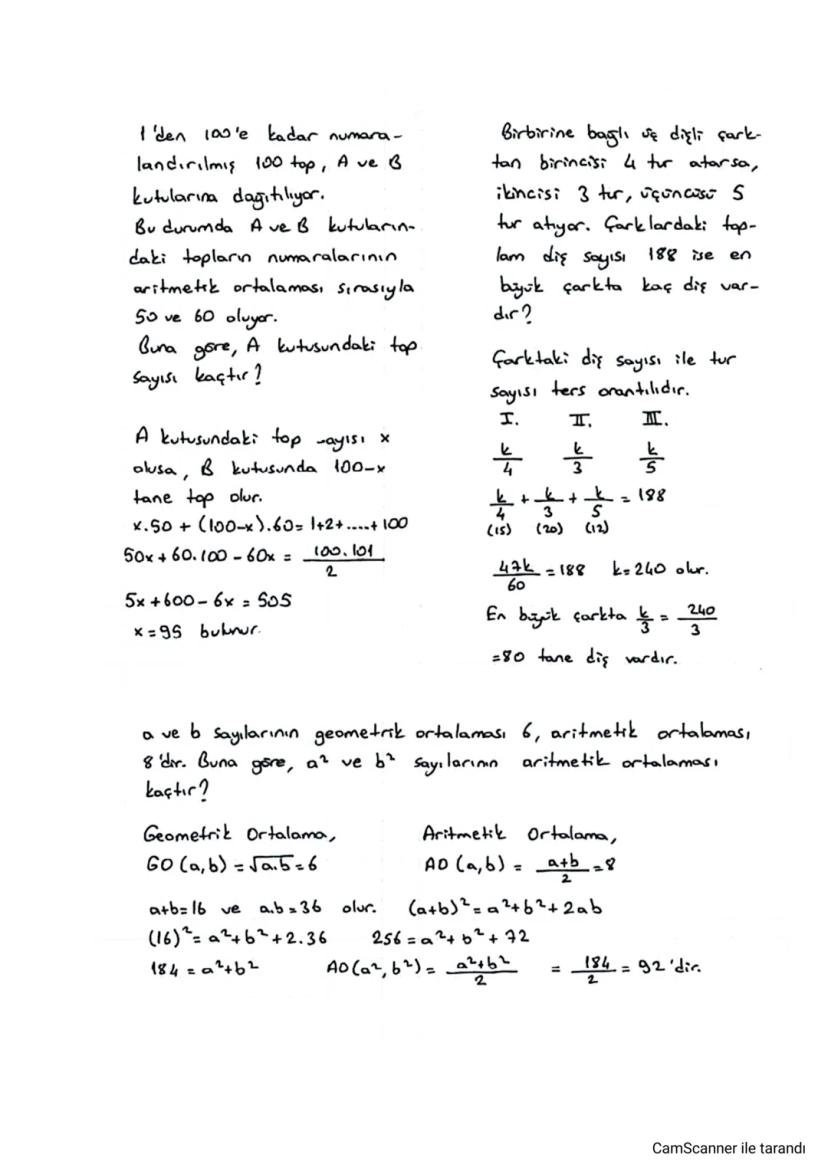 1'den 100'e kadar numara-
landırılmış 100 top, A ve B
kutularına dağıtılıyor.
Bu durumda A ve B kutuların-
daki topların numaralarının
aritmetik ortalaması sırasıyla
50 ve 60 oluyor.
Buna göre, A kutusundaki top
sayısı kaçtır?
A kutusundaki top -ayısı x
olusa, B kutusunda 100-x
tane top olur.
x.50 + (100-x).60 = 1+2+....+100
50x + 60.100 - 60x = 100.101 / 2
5x + 600 - 6x = 505
x = 95 bulunur.
Birbirine bağlı üç dişli çark-
tan birincisi 4 tur atarsa,
ikincisi 3 tur, üçüncüsü 5
tur atıyor. Çarklardaki top-
lam diş sayısı 188 ise en
büyük çarkta kaç diş var-
dır?
Çarktaki diş sayısı ile tur
sayısı ters orantılıdır.
I. II. III.
k/4 k/3 k/5
k/4 + k/3 + k/5 = 188
(15) (20) (12)
47k/60 = 188 k=240 olur.
En büyük çarkta k/3 = 240/3
=80 tane diş vardır.
a ve b sayılarının geometrik ortalaması 6, aritmetik ortalaması
8'dir. Buna göre, a² ve b² sayılarının aritmetik ortalaması
kaçtır?
Geometrik Ortalama, Aritmetik Ortalama,
GO (a,b) = √a.b = 6 AO (a,b) = a+b / 2 = 8
a+b=16 ve a.b=36 olur. (a+b)² = a²+b²+2ab
(16)² = a²+b²+2.36 256 = a²+b²+72
184 = a²+b² AO(a²,b²) = a²+b² / 2 = 184 / 2 = 92'dir.
CamScanner ile tarandı